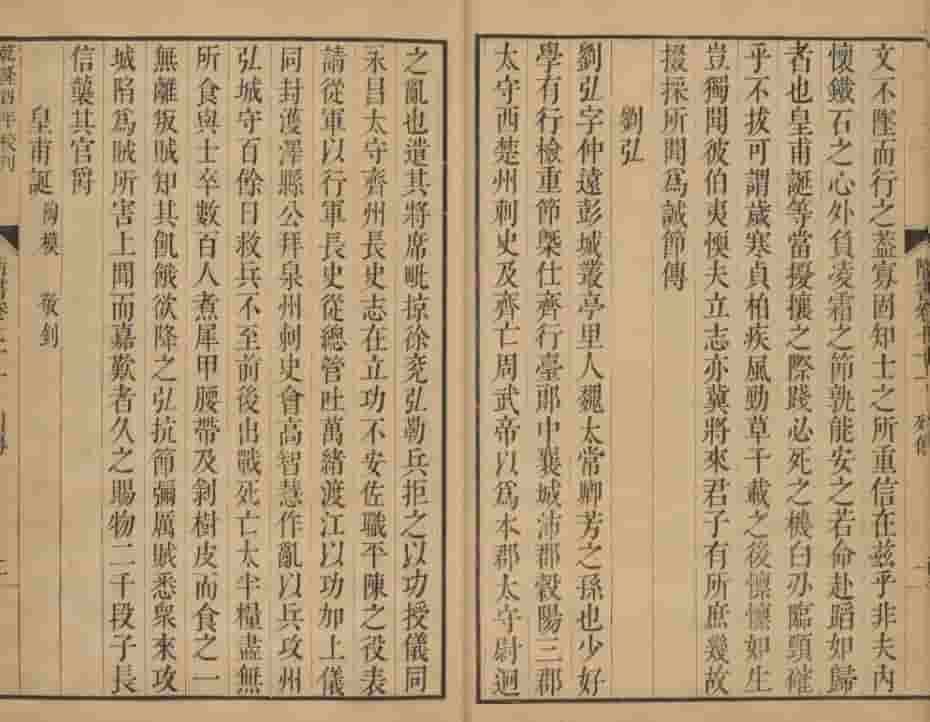 文不墜而行之葢寡固知士之所重信在兹乎非夫内
懷鐵石之心外負凌霜之節孰能安之若命赴蹈如歸
者也皇甫誕等當擾攘之際踐必死之機白刃臨頸確
乎不拔可謂歲寒貞柏疾風勁草千載之後懍懍如生
豈獨聞彼伯夷懦夫立志亦冀將來君子有所庶幾故
掇採所聞爲誠節傳
劉弘
劉弘字仲遠彭城叢亭里人魏太常卿芳之孫也少好
學有行檢重節槩仕齊行臺郎中襄城沛郡穀陽三郡
太守西楚州刺史及齊亡周武帝以爲本郡太守尉迥
之亂也遣其將席毗掠徐兗弘勒兵拒之以功授儀同
永昌太守齊州長史志在立功不安佐職平陳之役表
請從軍以行軍長史從總管吐萬緒渡江以功加上儀
同封濩澤縣公拜泉州刺史會高智慧作亂以兵攻州
弘城守百餘日救兵不至前後出戰死亡太半糧盡無
所食與士卒數百人煮犀甲腰帶及剥樹皮而食之一
無離叛賊知其飢餓欲降之弘抗節彌厲賊悉衆來攻
城陷爲賊所害上聞而嘉歎者久之賜物二千段子長
信襲其官爵
皇甫誕 陶模 敬釗